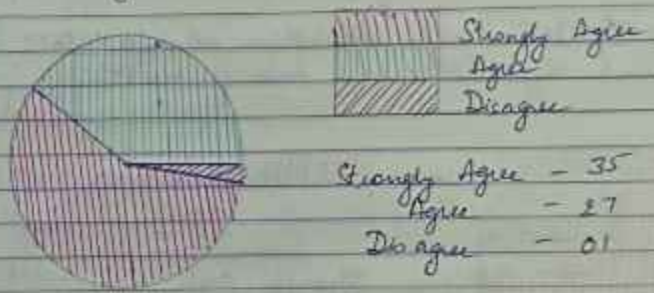 Strongly Agree
Agree
Disagree
Strongly Agree - 35
Agree - 27
Disagree - 01